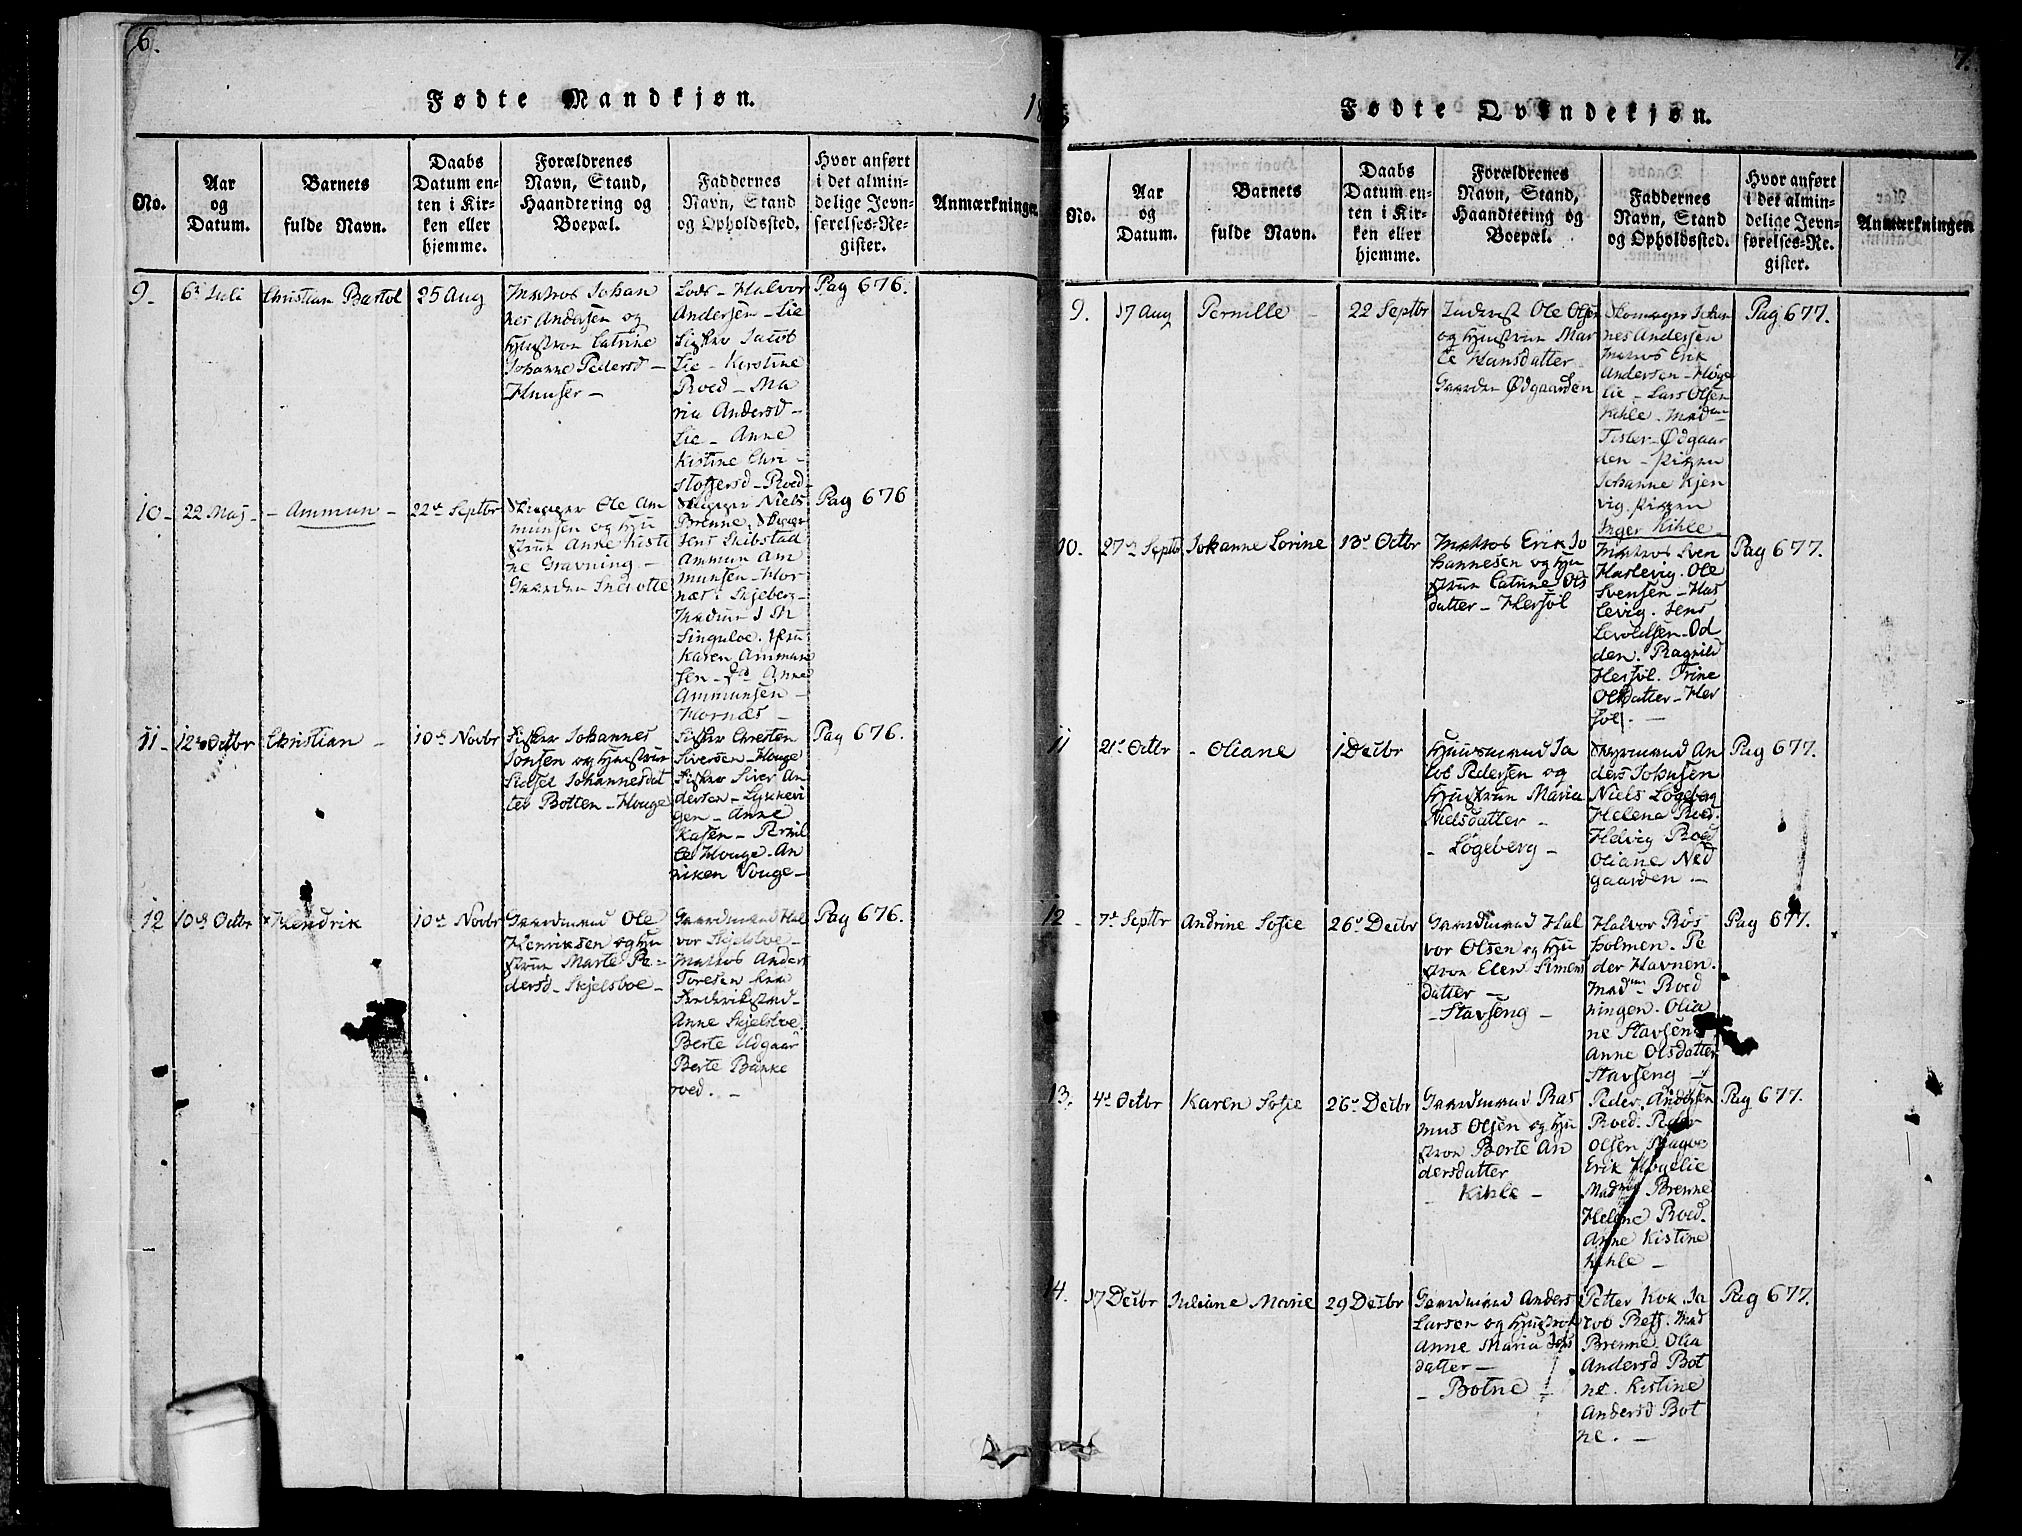 6.
Fødte Mandkjøn.
No.
Aar
og
Datum.
Barnets
fulde Navn.
Daabs
Datum en-
ten i Kir-
ken eller
hjemme.
Forældrenes
Navn, Stand,
Haandtering og
Boepæl.
Faddernes
Navn, Stand
og Opholdssted.
Hvor anført
i det almin-
delige Jevn-
førelses-Re-
gister.
Anmærkninger
9.
6te Juli
Christian Bartol
25 Aug
Matros Johan
nes Andersen og
Hustrue Catrine
Johanne Pedersd -
Huuser -
Lods - Halvor
Andersen - Lie
Fisker Jacob
Lie - Kirstine
Roed - Ma
ria Andersd -
Lie - Anne
Kistine Chri -
stoffersd - Roed -
Pag 676.
10 -
22 Maj -
- Ammun -
22de Septbr
Skipper Ole Am
munsen og Hu
strue Anne Kisti
ne Gravning -
Gaarden
Skipper Niels
Brenne. Skipper
Jens Skibstad
Ammun Am
munsen - Hor
næs i Skjeberg -
Madme
Singuloe. Fru
Karen Ammun
sen - Anne
Ammunsen -
Hornæs -
Pag 676
11 -
12te Octbr
Christian -
10de Novbr
Fisker Johannes
Jonsen og Hustrue
Sidsel Johannesdat
ter Botten - Houge
Fisker Christen
Siversen - Houge
Fisker Siver An
dersen - Lykkevi
gen - Anne
Kasen - Pernil
le Houge - An
niken Vouge -
Pag 676.
12
10de Octbr
Hendrik
10de Novbr
Gaardmand Ole
Henriksen og Hu
strue Marte Pe -
dersd - Skjelsboe -
Gaardmand Hal
vor Skjelsboe -
Matros Anders
Toresen fra
Frederikstad -
Anne Skjelsboe.
Berte Udgaar
Berte Bakke
roed. -
Pag 676.
7.
Fødte Qvindekjøn.
No.
Aar
og
Datum.
Barnets
fulde Navn.
Daabs
Datum en-
ten i Kir-
ken eller
hjemme.
Forældrenes
Navn, Stand,
Haandtering og
Boepæl.
Faddernes
Navn, Stand
og Opholdssted.
Hvor anført
i det almin-
delige Jevn-
førelses-Re-
gister.
Anmærkningen
9.
17 Aug
Pernille -
22 Septbr
Inderst Ole Olsen
og Hustrue Mar
te Hansdatter -
Gaarden Ødgaarden
Skomager Johan
nes Andersen
Matros Erik
Andersen - Høge
lie - Lars Olsen
Kihle - Madme
Tisler - Ødgaar
den - Pigen
Johanne Kjen
vig. Pigen
Inger Kihle -
Pag 677.
10.
27de Septbr
Johanne Lorine
13de Octbr
Matros Erik Jo
hannesen og Hu
strue Catrine Ols
datter - Hersøl
Matros Sven
Haslevig. Ole
Svensen - Has
levig. Jens
Levoldsen - Od
den. Ragnild
Hersøl. Trine
Olsdatter - Her
søl. -
Pag 677.
11
21de Octbr
- Oliane
1 Decbr
Huusmand Ja
cob Pedersen og
Hustrue Maria
Nielsdatter -
- Løgeberg -
Styrmand An
ders Johnsen
Niels Løgeberg
Helena Roed.
Helvig Roed
Oliane Ned
gaarden -
Pag 677.
12 -
7de Septbr
Andrine Sofie
26de Decbr
Gaardmand Hal
vor Olsen og Hu
strue Elen Simens
datter -
- Stavseng -
Halvor Røs
holmen. Pe
der Havnen.
Madme Roed
ningen. Olia
ne Stavseng
Anne Olsdatter
Stavseng -
Pag 677.
13.
4de Octbr
Karen Sofie
26de Decbr
Gaardmand Ras
mus Olsen og Hu
strue Berte An
dersdatter
- Kihle -
Peder Andersen
Roed. Peder
Olsen
Erik Høgelie
Madme Brenne
Helene Roed.
Anne Kistine
Kihle -
Pag 677.
14.
17 Decbr
Juliane Marie
29 Decbr
Gaardmand Anders
Larsen og Hustrue
Anne Maria Jens
datter -
- Botne -
Petter Kok. Ja
cob Reff. Mad
Brenne. Olia
Andersd Bot
ne. Kistine
Andersd Bot
ne. -
Pag 677.